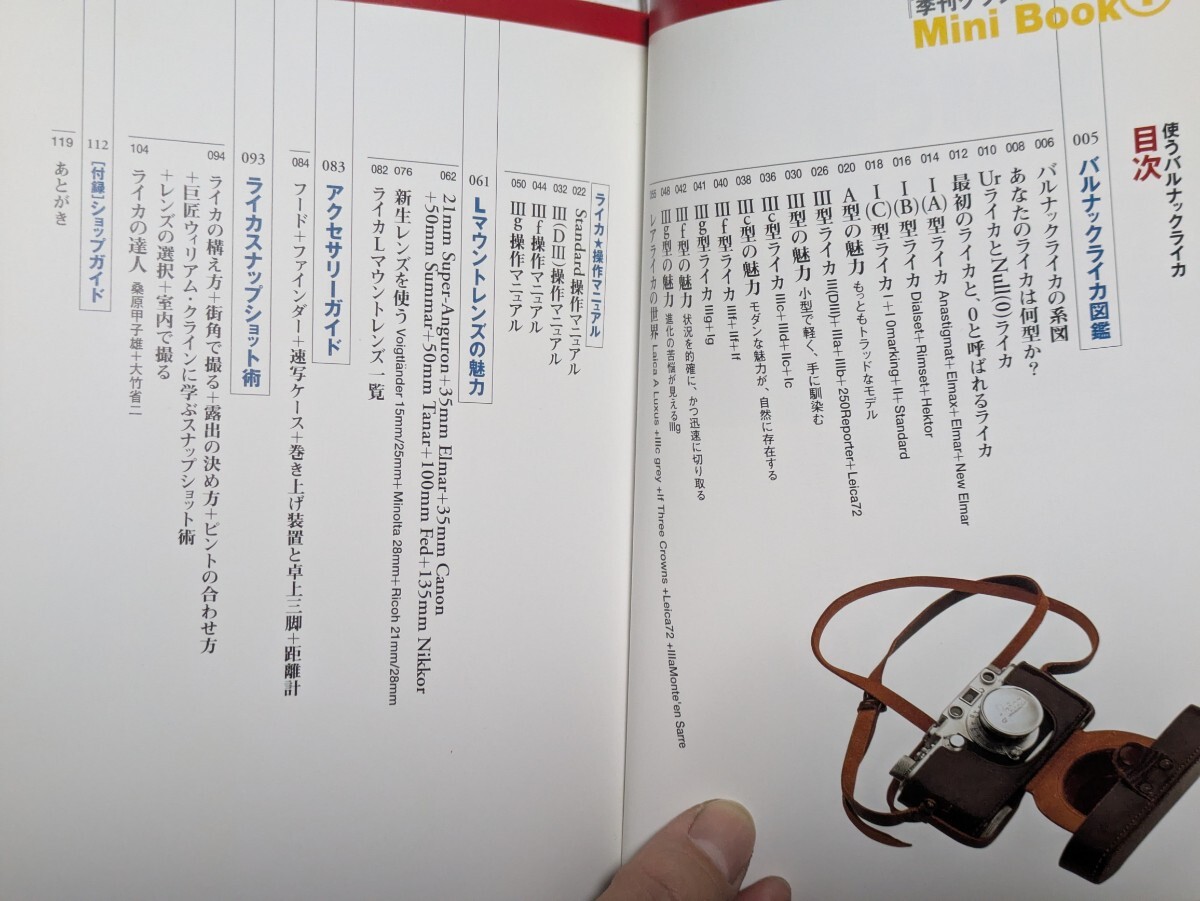 『季刊クラシ
Mini Book
使うバルナックライカ
目次
005 バルナックライカ図鑑
006 バルナックライカの系図
008 あなたのライカは何型か?
010 UrライカとNull(0)ライカ
012 最初のライカと、0と呼ばれるライカ
014 I(A)型ライカ Anastigmat+Elmax+Elmar+New Elmar
016 I(B)型ライカ Dialset+Rimset+Hektor
018 I(C)型ライカ I+10marking+II+Standard
020 A型の魅力 もっともトラッドなモデル
026 III型ライカ III(DIII)+IIIa+IIIb+250Reporter+Leica72
030 III型の魅力 小型で軽く、手に馴染む
036 IIIc型ライカ IIIc+IIId+IIc+Ic
038 IIIc型の魅力 モダンな魅力が、自然に存在する
040 IIIf型ライカ IIIf+IIf+If
041 IIIg型ライカ IIIg+Ig
042 IIIf型の魅力 状況を的確に、かつ迅速に切り取る
048 IIIg型の魅力 進化の苦悩が見えるIIIg
056 レアライカの世界 Leica A Luxus +IIIc grey +If Three Crowns +Leica72 +IIIaMonte'en Sarre
ライカ★操作マニュアル
022 Standard操作マニュアル
032 III(DIII)操作マニュアル
044 IIIf操作マニュアル
050 IIIg操作マニュアル
061 Lマウントレンズの魅力
062 21mm Super-Anguron+35mm Elmar+35mm Canon
+50mm Summar+50mm Tanar+100mm Fed+135mm Nikkor
076 新生レンズを使う Voigtländer 15mm/25mm+Minolta 28mm+Ricoh 21mm/28mm
082 ライカLマウントレンズ一覧
083 アクセサリーガイド
084 フード+ファインダー+速写ケース+巻き上げ装置と卓上三脚+距離計
093 ライカスナップショット術
094 ライカの構え方+街角で撮る+露出の決め方+ピントの合わせ方
+巨匠ウィリアム・クラインに学ぶスナップショット術
+レンズの選択+室内で撮る
104 ライカの達人 桑原甲子雄+大竹省二
112 [付録]ショップガイド
119 あとがき